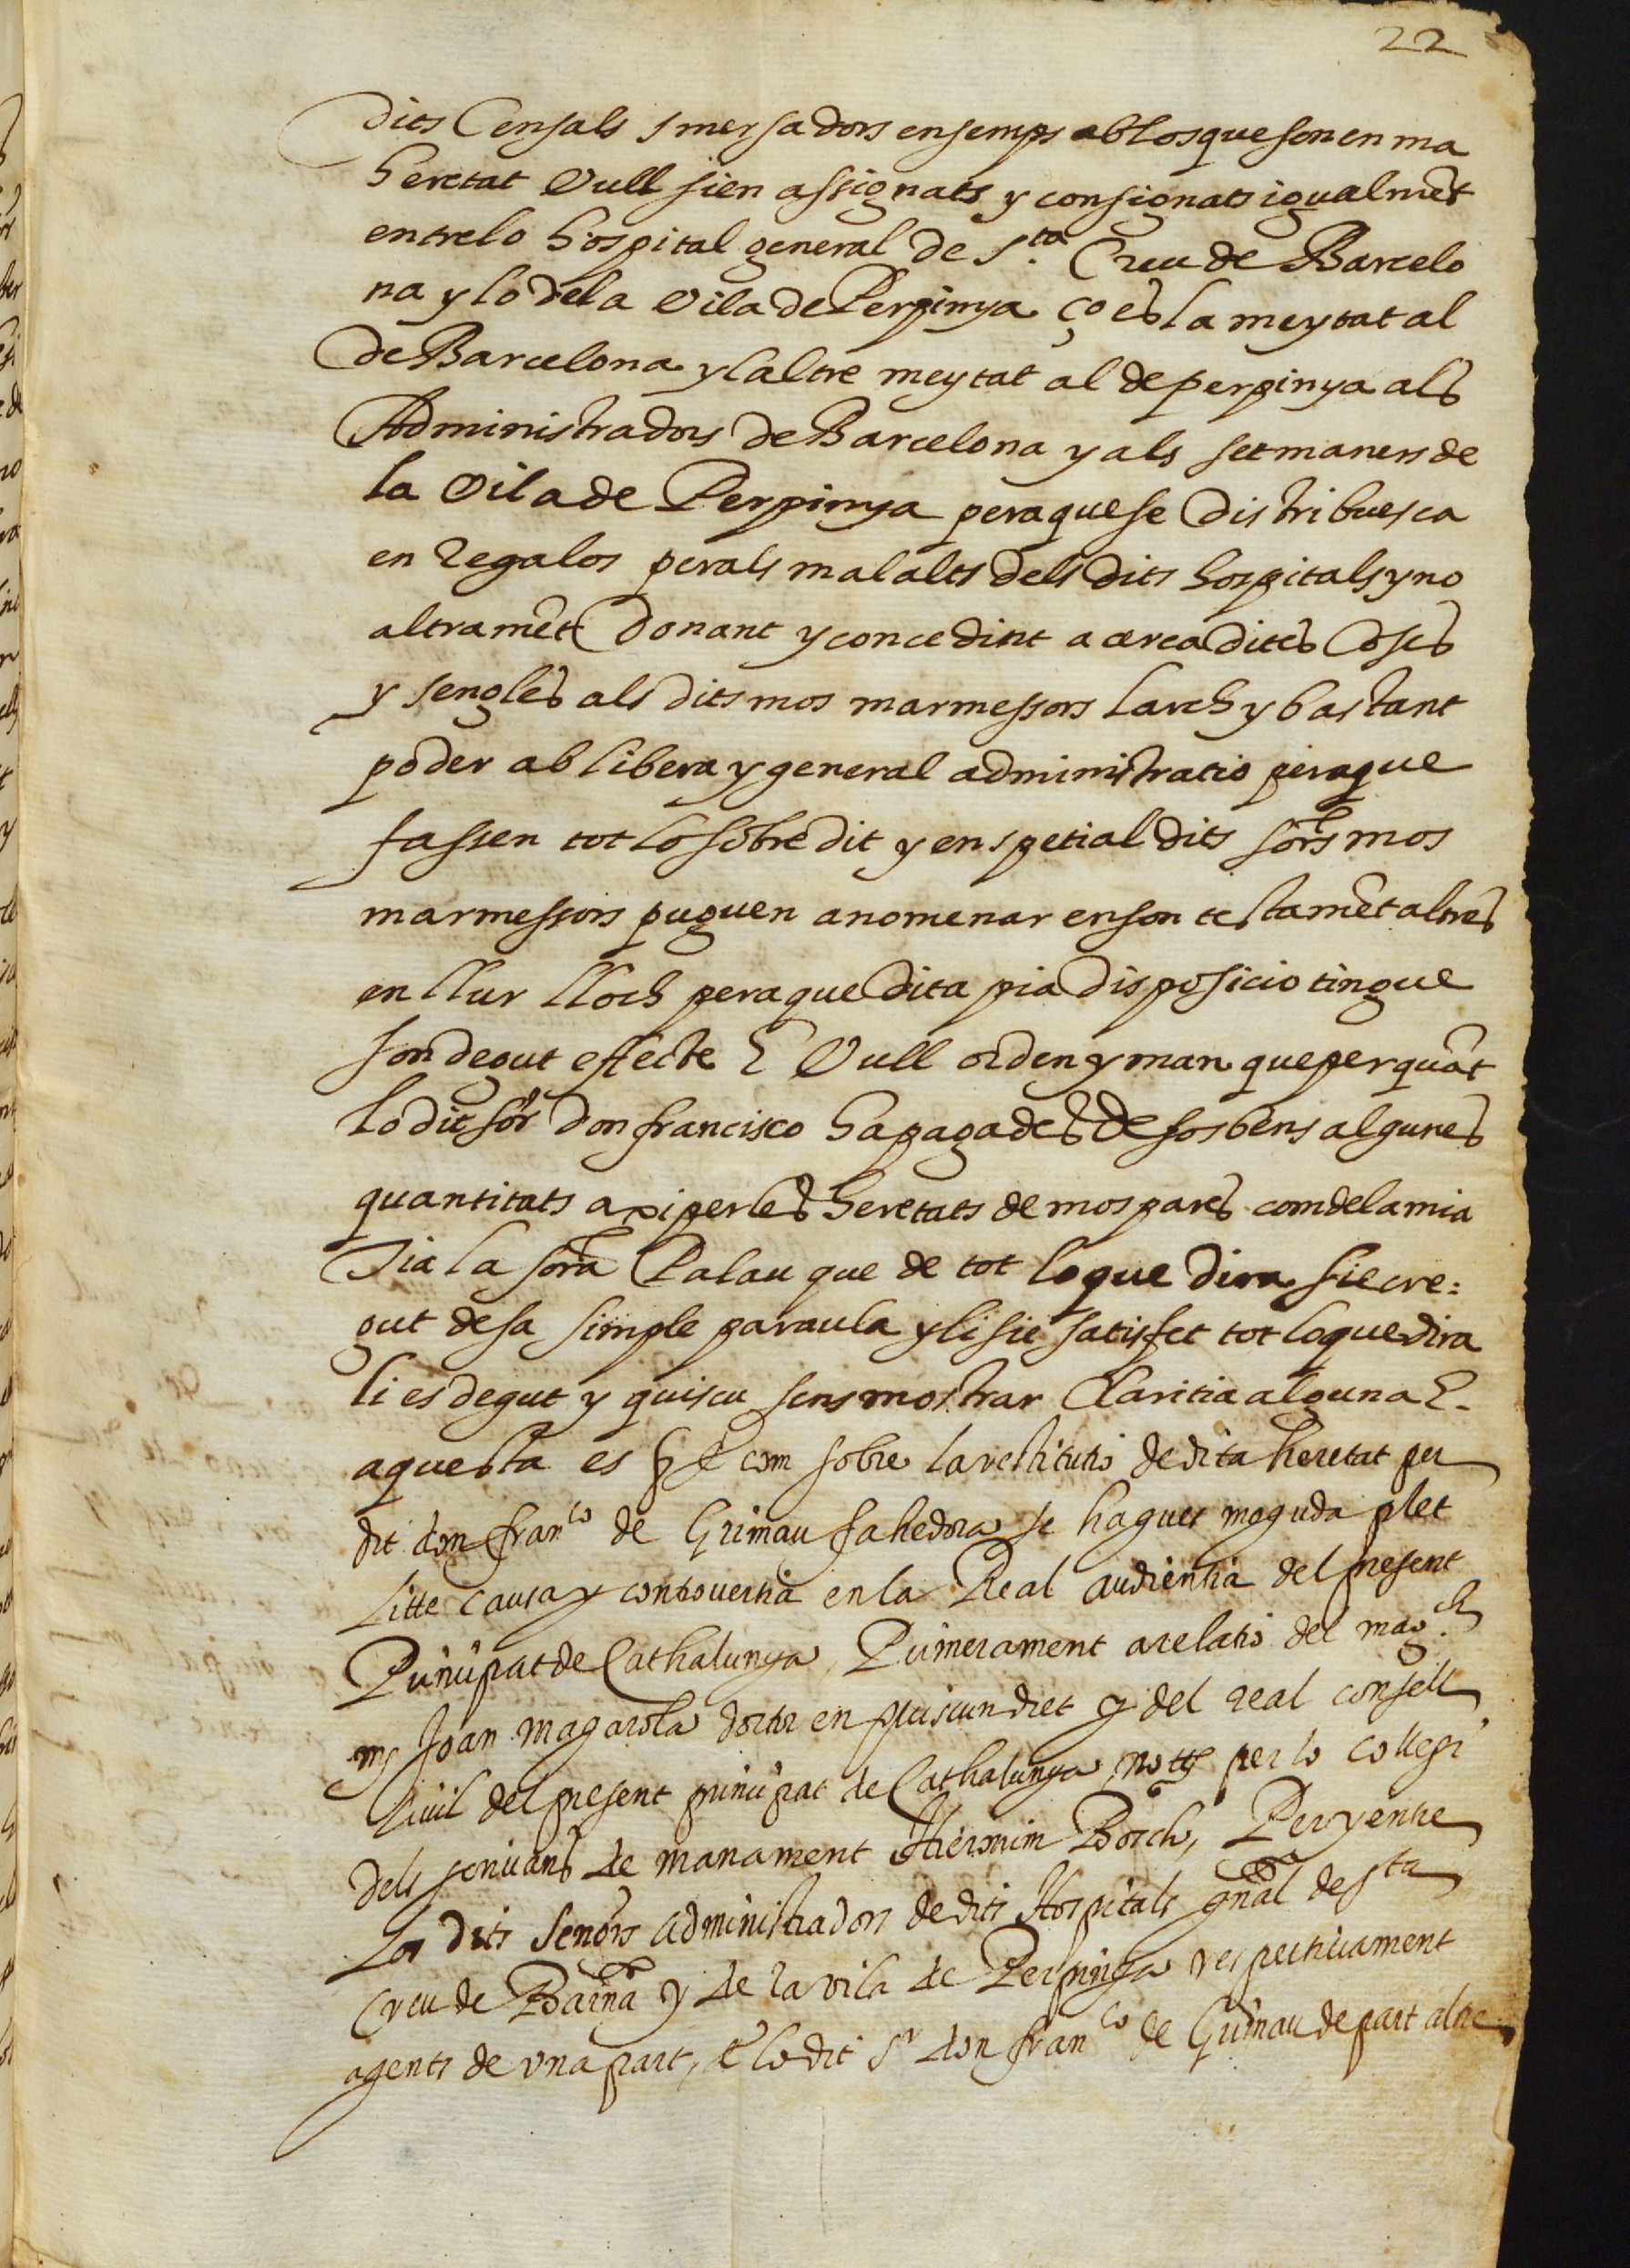 22
dits Censals smersadors ensemps ab los que son en ma
heretat Vull sien assignats y consignats igualmēt
entre lo hospital general de S.ta Creu de Barcelo
na y lo de la Vila de Perpinya ço es la meytat al
de Barcelona y laltre meytat al de perpinya als
Administradors de Barcelona y als setmaners de
la Vila de Perpinya pera que se distribuesca
en Regalos perals malalts dels dits hospitals y no
altramēt Donant y concedint acerca dites Coses
y sengles als dits mos marmessors larch y bastant
poder ab libera y general administratio pera que
fassen tot lo sobredit y en spetial dits sors mos
marmessors puguen anomenar en son testamēt altres
en llur lloch pera que dita pia disposicio tingue
son degut effecte E Vull orden y man que per quāt
lo dit sor Don francisco ha pagades de sos bens algunes
quantitats axi per les heretats de mos pares com de la mia
Tia la sora Palau que de tot lo que dira sie cre:
gut de sa simple paraula y li sie satisfet tot lo que dira
li es degut y quiscu sens mostrar Claritia alguna E.
aquesta es com sobre la restitutio de dita heretat per
dit don fran.co de Grimau fahedora se hagues moguda plet
Litte causa y controversia en la Real audientia del present
Principat de Cathalunya Primerament a relatio del mag.ch
ms Joan magarola doctor en quiscun dret y del real consell
Civil del present principat de Cathalunya, per lo collegi
dels scrivans de manament Hieronim Bosch, Per y entre
Los dits senors administradors de dits Hospitals gñal de Sta
Creu de Barña y de la vila de Perpinya respectivament
agents de una part, e lo dit Sr don fran.co de Grimau de part altre